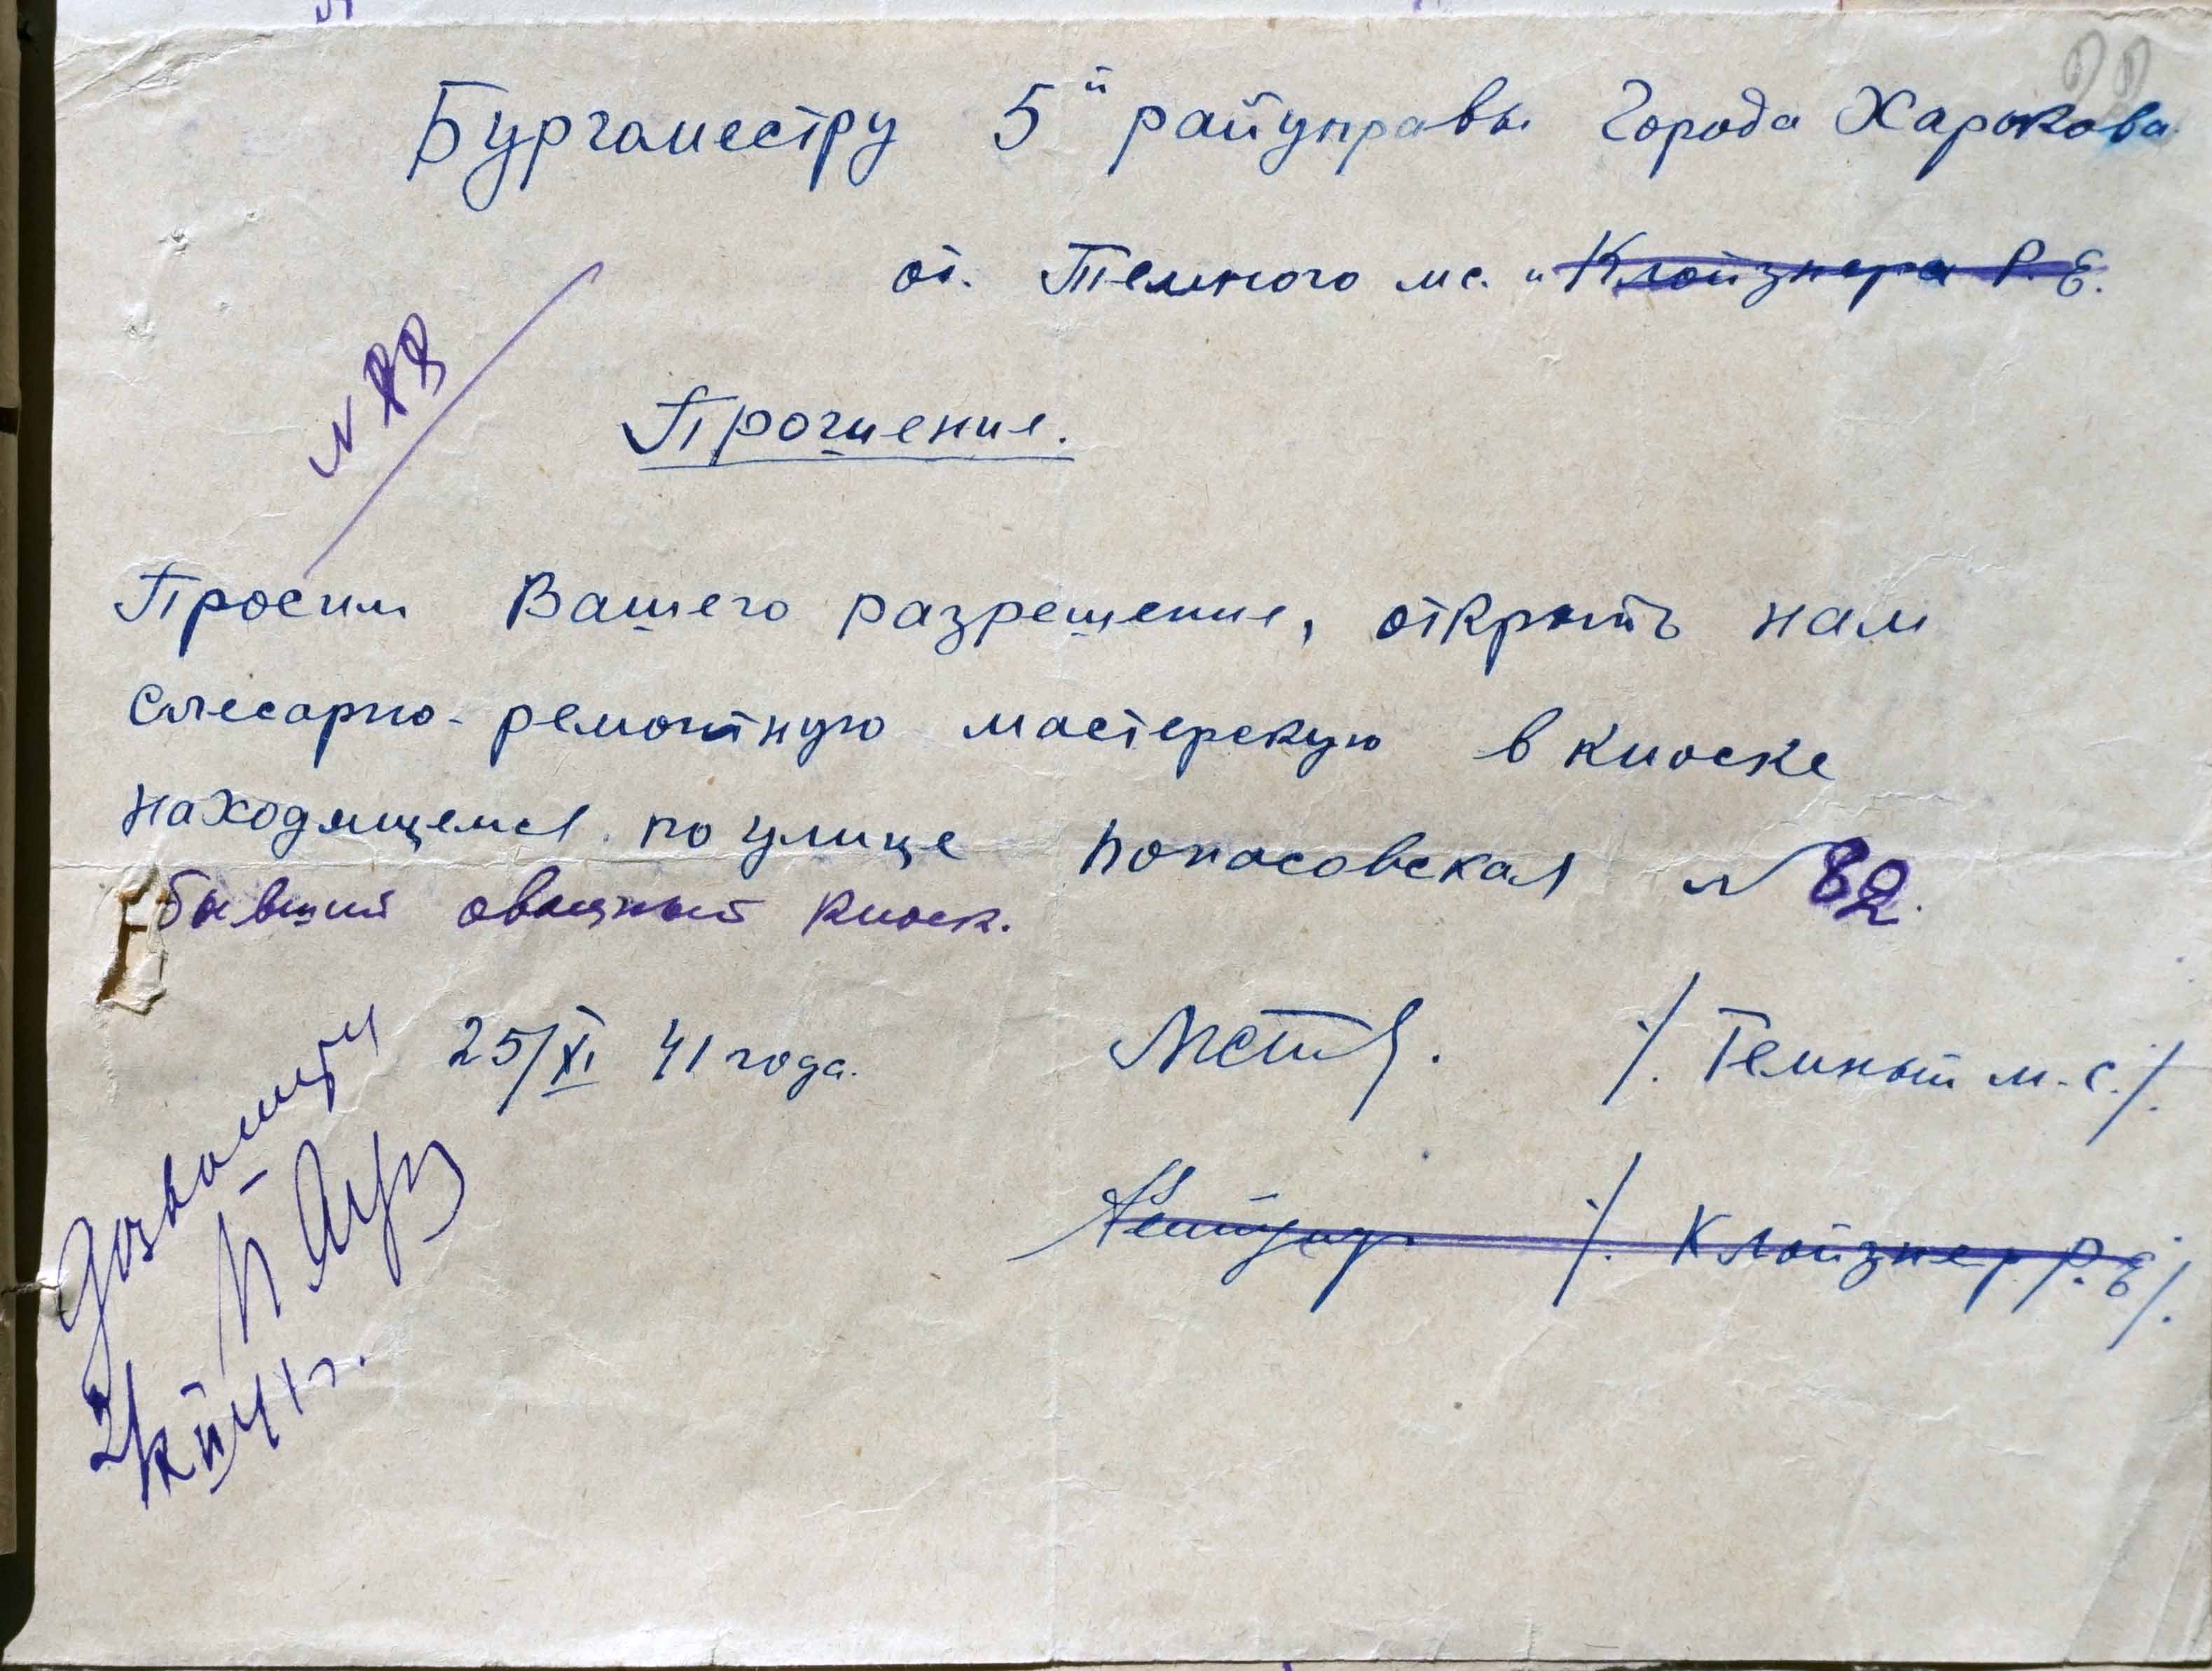 Бургаместру 5й райуправы города Харькова
от. Темного м с. и Клойзнера Р. Е.
N 88
Прошение.
Просим Вашего разрешение, открыть нам
слесарно-ремонтную мастерскую в киоске
находящемся по улице Попасовская N 82.
бывший овощный киоск.
25/XI 41 года.
/. Темный м. с./.
/. Клойзнер Р. Е/.